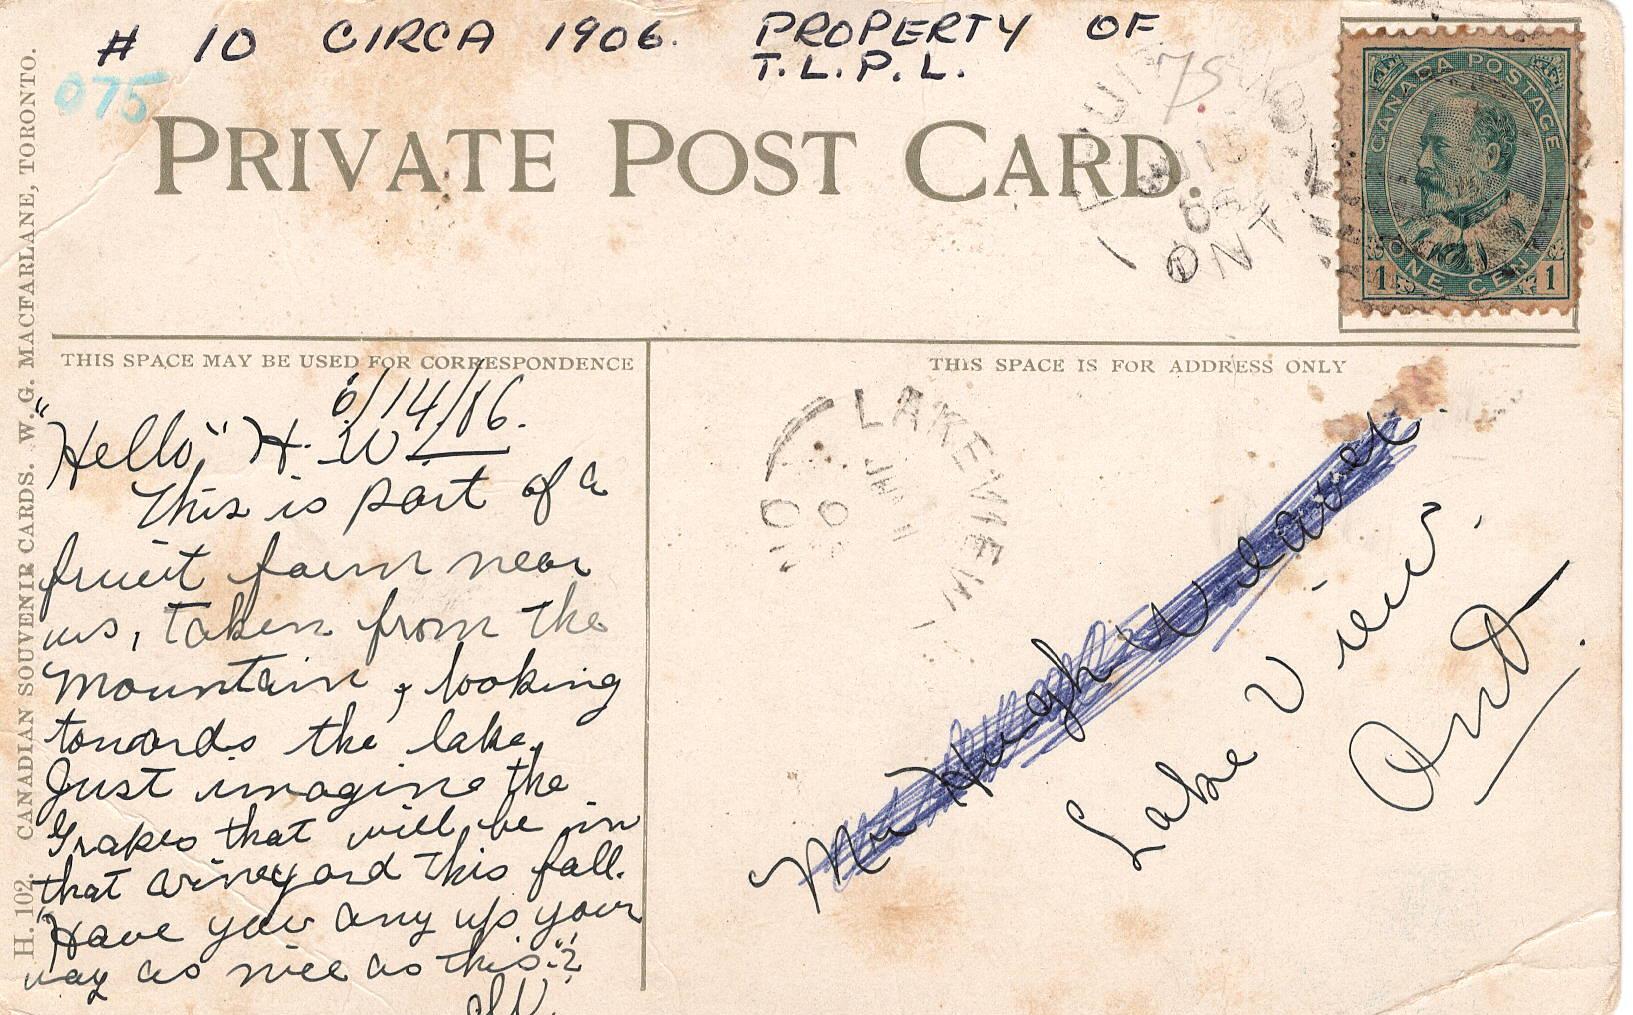 # 10 CIRCA 1906. PROPERTY OF
T.L.P.L.
075
75
PRIVATE POST CARD.
15
ONT
CANADA POSTAGE
ONE CENT
1 1
H. 102. CANADIAN SOUVENIR CARDS. W. G. MACFARLANE, TORONTO.
THIS SPACE MAY BE USED FOR CORRESPONDENCE
6/14/06.
"Hello," H. W L
This is part of a
fruit farm near
us, taken from the
Mountain, looking
towards the lake.
Just imagine the
Grapes that will be in
that vineyard this fall.
"Have you any up your
way as nice as this."?
THIS SPACE IS FOR ADDRESS ONLY
LAKEVIEW
Mr Hugh W
Lake View.
Ont.